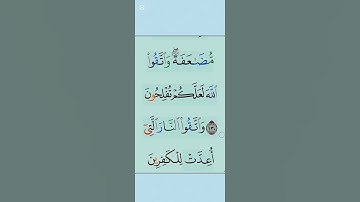 مُّضَٰعَفَةً ۖ وَٱتَّقُوا۟
ٱللَّهَ لَعَلَّكُمْ تُفْلِحُونَ
﴿١٣٠﴾ وَٱتَّقُوا۟ ٱلنَّارَ ٱلَّتِىٓ
أُعِدَّتْ لِلْكَٰفِرِينَ